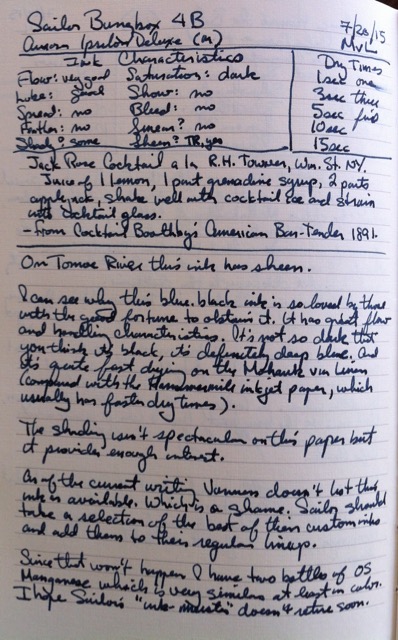 Sailor Bungbox 4B
7/28/15
Aurora Ipsilon Deluxe (m)
MvL
Ink Characteristics
Dry Times
Flow: very good Saturation: dark
1sec one
Lube: good Show: no
3sec three
Spread: no Bleed: no
5sec five
Feather: no Smear? no
10sec
Shade? some Sheen? TR, yes
15sec
Jack Rose Cocktail a la R.H. Towner, Wm. St. NY.
Juice of 1 lemon, 1 part grenadine syrup, 2 parts
applejack, shake well with cocktail ice and strain
into cocktail glass.
- from Cocktail Boothby's American Bar-Tender 1891.
On Tomoe River this ink has sheen.
I can see why this blue.black ink is so loved by those
with the good fortune to obtain it. It has great flow
and handling characteristics. It's not so dark that
you think it's black, it's definitely deep blue. And
it's quite fast drying on the Mohawk via Linen
(compared with the Hammermill inkjet paper, which
usually has faster dry times).
The shading isn't spectacular on this paper but
it provides enough interest.
As of the current writing Vanness doesn't list this
ink as available. Which is a shame. Sailor should
take a selection of the best of them custom inks
and add them to their regular lineup.
Since that won't happen I have two bottles of OS
Manganese which is very similar at least in color.
I hope Sailor's "ink-maestro" doesn't retire soon.